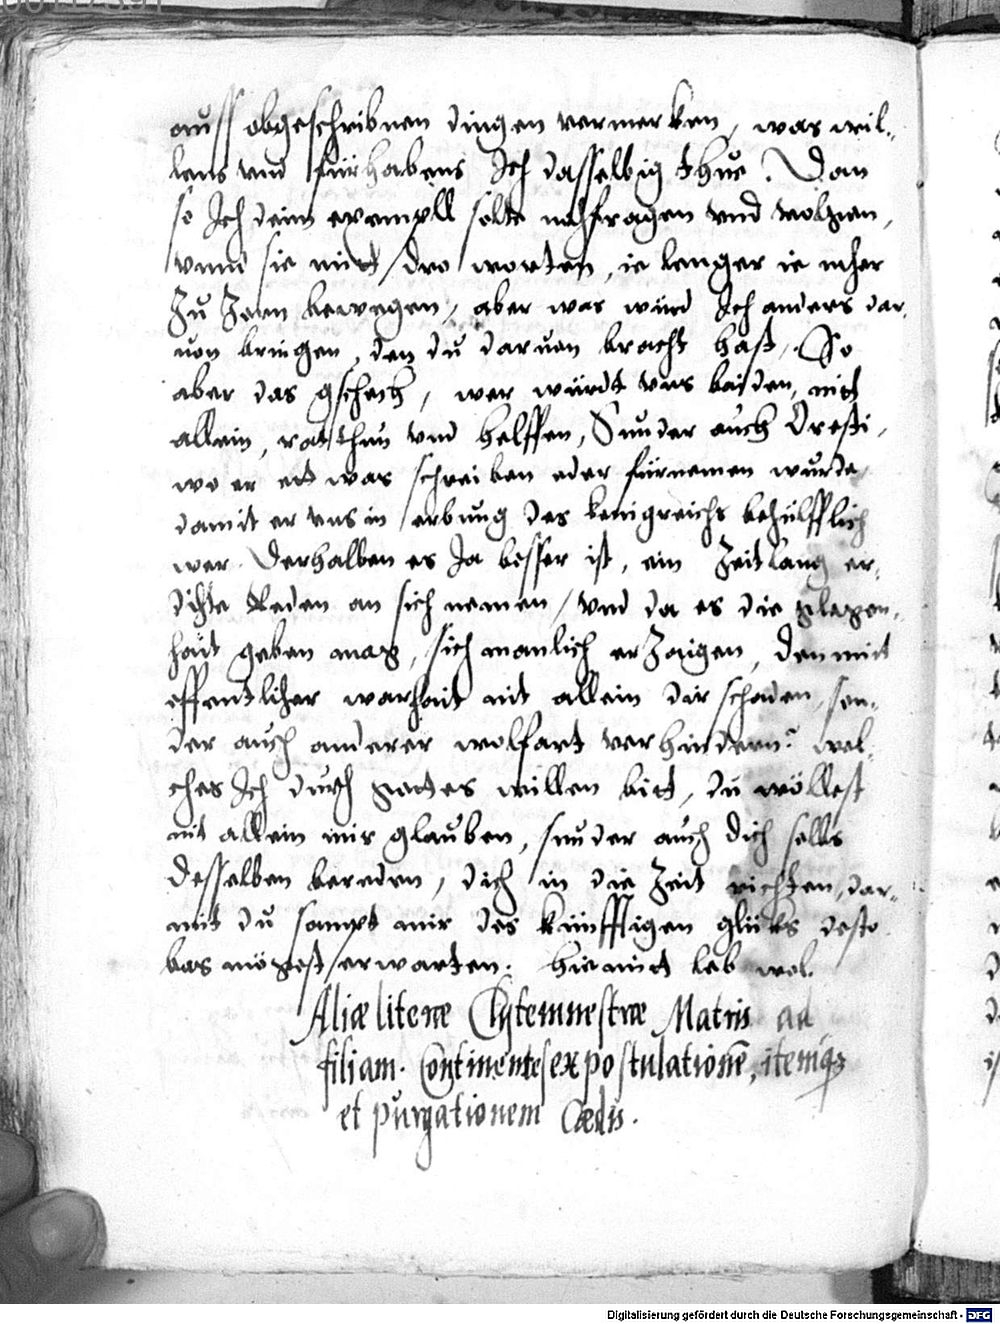 auss obgeschribnen dingen vermerken, was wil-
lens und fürhabens Ich dasselbig thue. Dan
so Ich deim exempll solte nachfragen und volzien,
unnd sie mitt dro worten, ie lenger ie meher
zu zorn bewegen, aber was würd Ich anders dar-
von bringen, den du darvon bracht hast, So
aber das gschech, wer würdt uns baiden, nit
allein, rat thun und helffen, Sunder auch Oresti,
wo er ett was schreiben oder fürnemen wurde,
damit er uns in erbung des kenigreichs behülfflich
wer. Derhalben es Ja besser ist, ein Zeitlang er-
dichte Reden an sich nemen, und da es die glegen-
hait geben mag, sich manlich erzaigen, den mit
effentlicher warhait nit allein dir schaden, son-
der auch anderer wolfart verhindern? wel-
ches Ich durch gottes willen bitt, du wöllest
nit allein mir glauben, sunder auch dich selbs
desselben bereden, dich in die Zeit richten, dar-
mit du sampt mir des künfftigen glücks desto
bas mögest erwarten. Hiemitt leb wol.
Aliæ literæ Clytemnestræ Matris ad
filiam. Continentes expostulationē, itemq3
et purgationem Cædis.
Digitalisierung gefördert durch die Deutsche Forschungsgemeinschaft - DFG